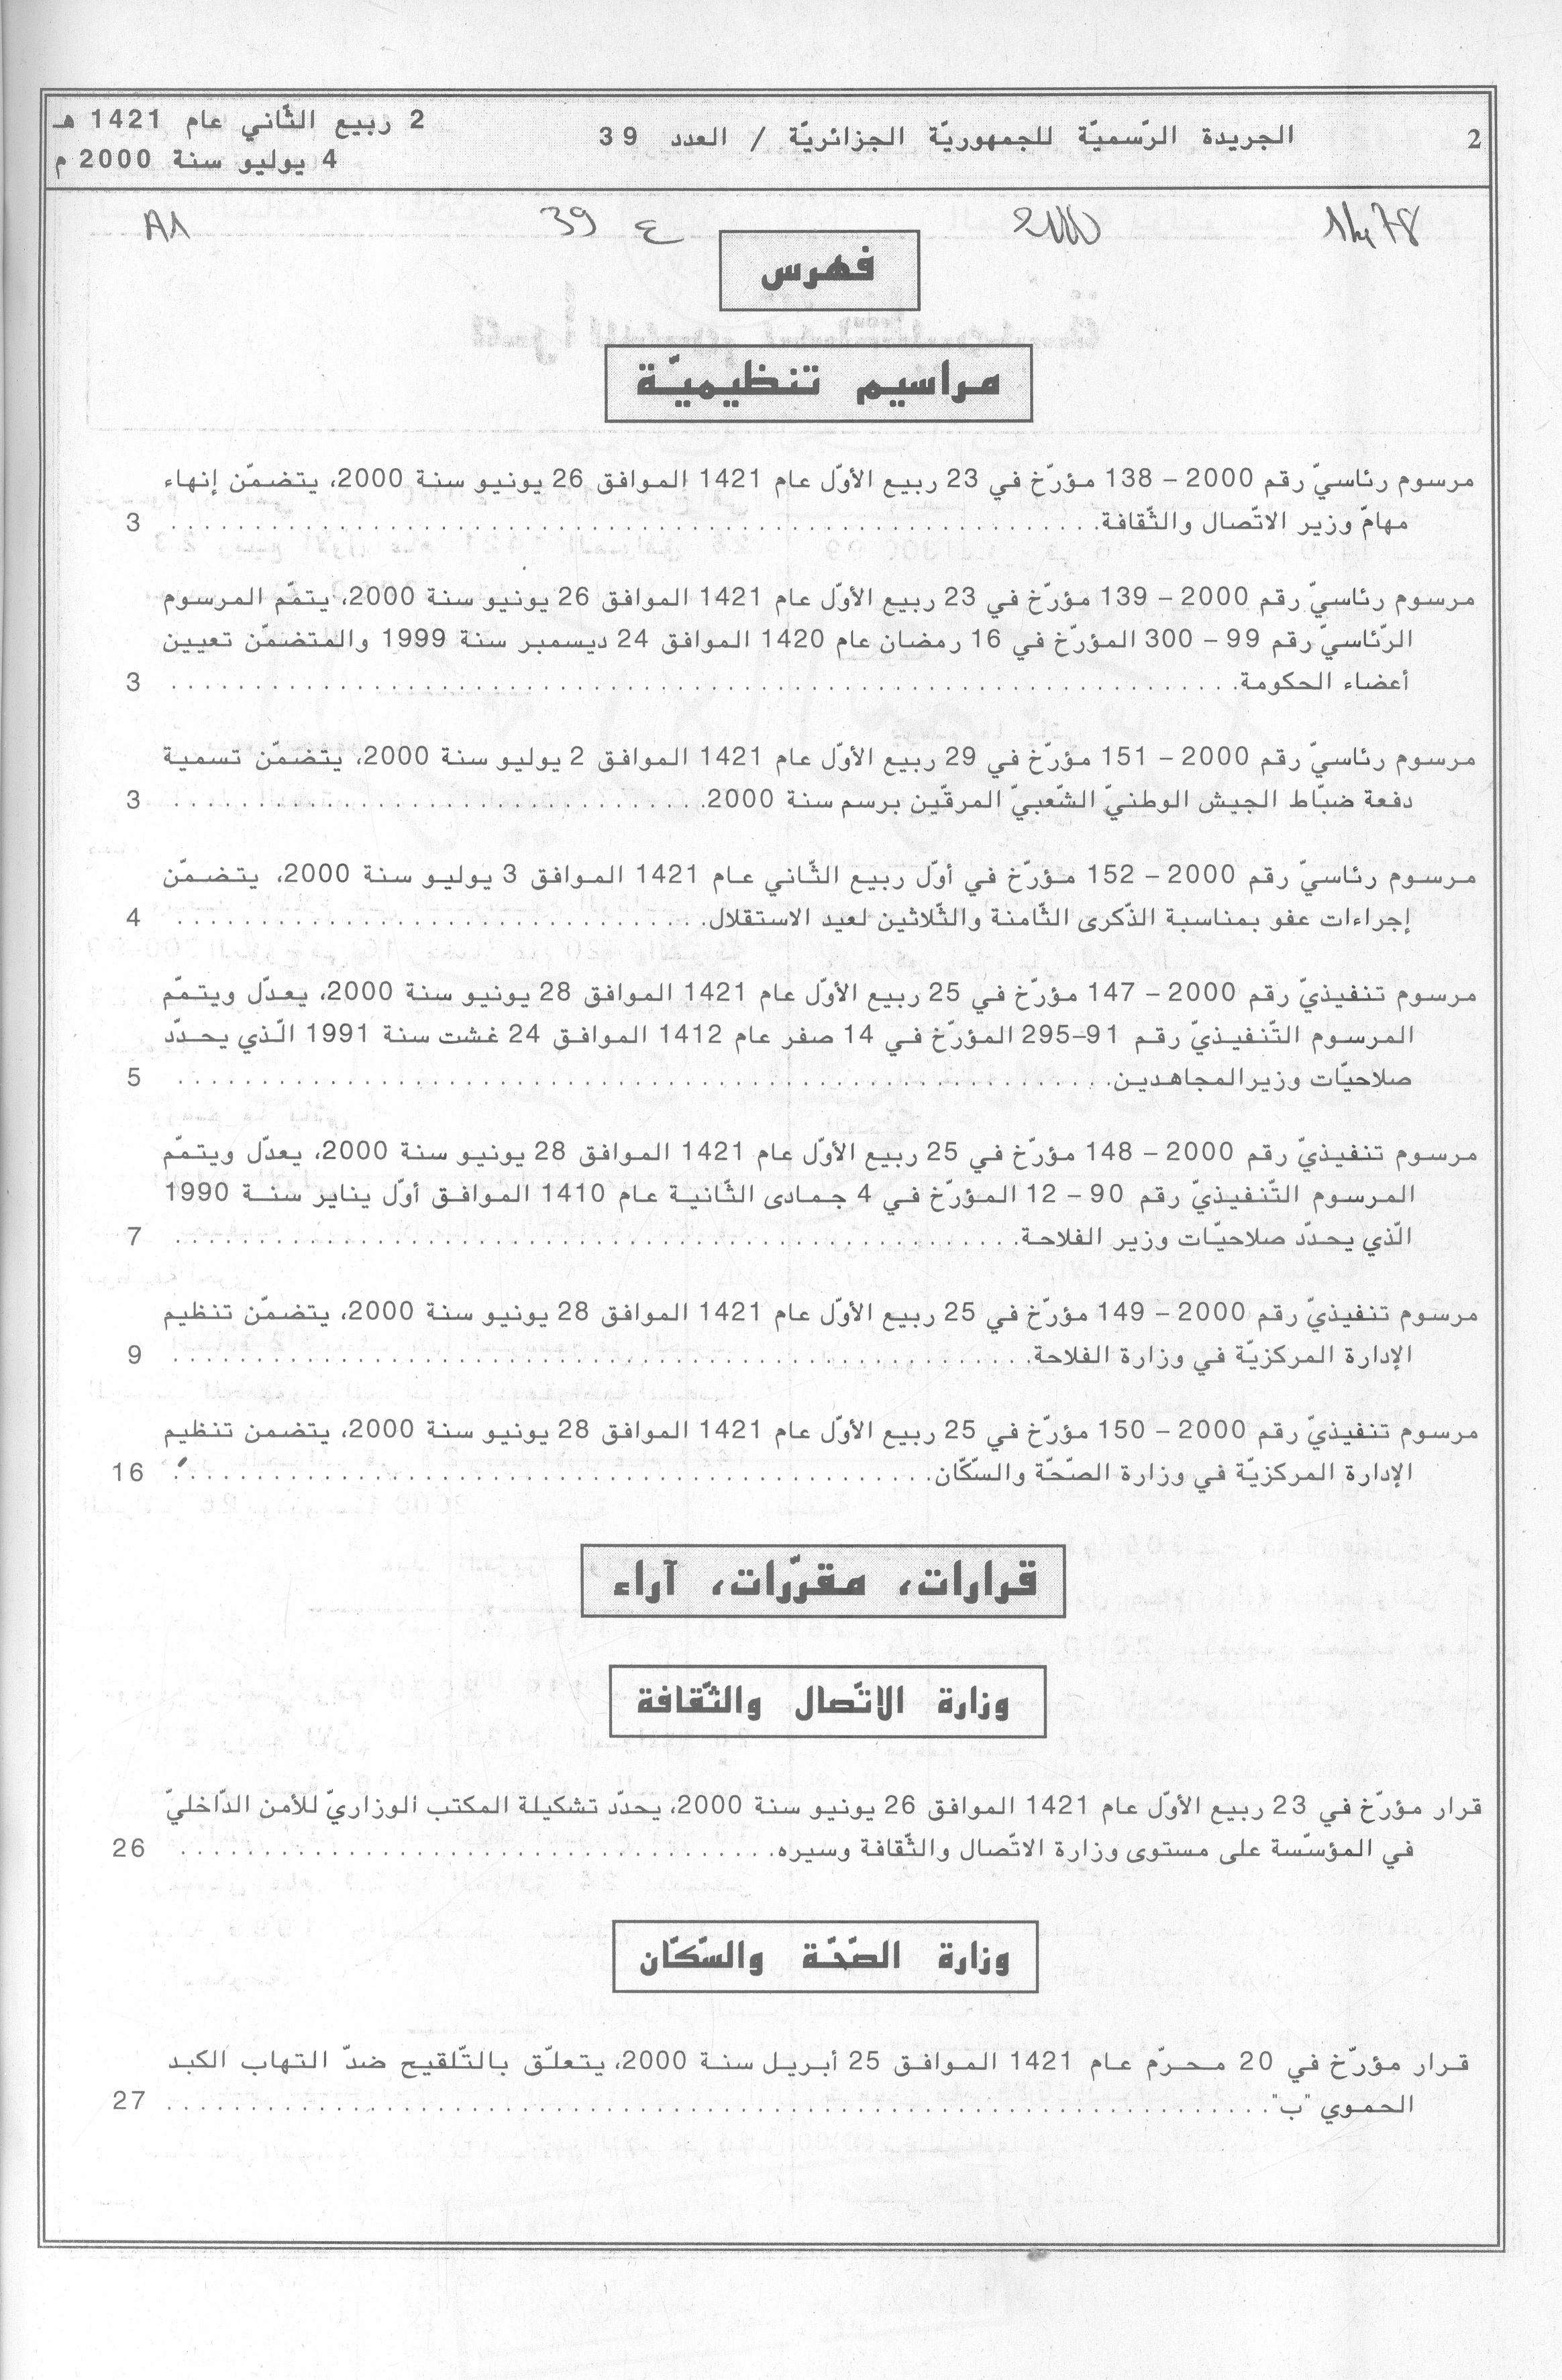 2
الجريدة الرّسميّة للجمهوريّة الجزائريّة / العدد 39
2 ربيع الثّاني عام 1421 هـ
4 يوليو سنة 2000 م
2000
ع 39
A1
فهرس
مراسيم تنظيميّة
مرسوم رئاسيّ رقم 2000 – 138 مؤرّخ في 23 ربيع الأوّل عام 1421 الموافق 26 يونيو سنة 2000، يتضمّن إنهاء
مهامّ وزير الاتّصال والثّقافة. . . . . . . . . . . . . . . . . . . . 3
مرسوم رئاسيّ رقم 2000 – 139 مؤرّخ في 23 ربيع الأوّل عام 1421 الموافق 26 يونيو سنة 2000، يتمّم المرسوم
الرّئاسيّ رقم 99 – 300 المؤرّخ في 16 رمضان عام 1420 الموافق 24 ديسمبر سنة 1999 والمتضمّن تعيين
أعضاء الحكومة. . . . . . . . . . . . . . . . . . . . 3
مرسوم رئاسيّ رقم 2000 – 151 مؤرّخ في 29 ربيع الأوّل عام 1421 الموافق 2 يوليو سنة 2000، يتضمّن تسمية
دفعة ضبّاط الجيش الوطنيّ الشّعبيّ المرقّين برسم سنة 2000. . . . . . . . . . . . . . . . . . . . 3
مرسوم رئاسيّ رقم 2000 – 152 مؤرّخ في أوّل ربيع الثّاني عام 1421 الموافق 3 يوليو سنة 2000، يتضمّن
إجراءات عفو بمناسبة الذّكرى الثّامنة والثّلاثين لعيد الاستقلال. . . . . . . . . . . . . . . . . . . . 4
مرسوم تنفيذيّ رقم 2000 – 147 مؤرّخ في 25 ربيع الأوّل عام 1421 الموافق 28 يونيو سنة 2000، يعدّل ويتمّم
المرسوم التّنفيذيّ رقم 91–295 المؤرّخ في 14 صفر عام 1412 الموافق 24 غشت سنة 1991 الّذي يحدّد
صلاحيّات وزير المجاهدين. . . . . . . . . . . . . . . . . . . . 5
مرسوم تنفيذيّ رقم 2000 – 148 مؤرّخ في 25 ربيع الأوّل عام 1421 الموافق 28 يونيو سنة 2000، يعدّل ويتمّم
المرسوم التّنفيذيّ رقم 90 – 12 المؤرّخ في 4 جمادى الثّانية عام 1410 الموافق أوّل يناير سنة 1990
الّذي يحدّد صلاحيّات وزير الفلاحة. . . . . . . . . . . . . . . . . . . . 7
مرسوم تنفيذيّ رقم 2000 – 149 مؤرّخ في 25 ربيع الأوّل عام 1421 الموافق 28 يونيو سنة 2000، يتضمّن تنظيم
الإدارة المركزيّة في وزارة الفلاحة. . . . . . . . . . . . . . . . . . . . 9
مرسوم تنفيذيّ رقم 2000 – 150 مؤرّخ في 25 ربيع الأوّل عام 1421 الموافق 28 يونيو سنة 2000، يتضمن تنظيم
الإدارة المركزيّة في وزارة الصّحّة والسّكّان. . . . . . . . . . . . . . . . . . . . 16
قرارات، مقرّرات، آراء
وزارة الاتّصال والثّقافة
قرار مؤرّخ في 23 ربيع الأوّل عام 1421 الموافق 26 يونيو سنة 2000، يحدّد تشكيلة المكتب الوزاريّ للأمن الدّاخليّ
في المؤسّسة على مستوى وزارة الاتّصال والثّقافة وسيره. . . . . . . . . . . . . . . . . . . . 26
وزارة الصّحّة والسّكّان
قرار مؤرّخ في 20 محرّم عام 1421 الموافق 25 أبريل سنة 2000، يتعلّق بالتّلقيح ضدّ التهاب الكبد
الحموي "ب". . . . . . . . . . . . . . . . . . . . 27